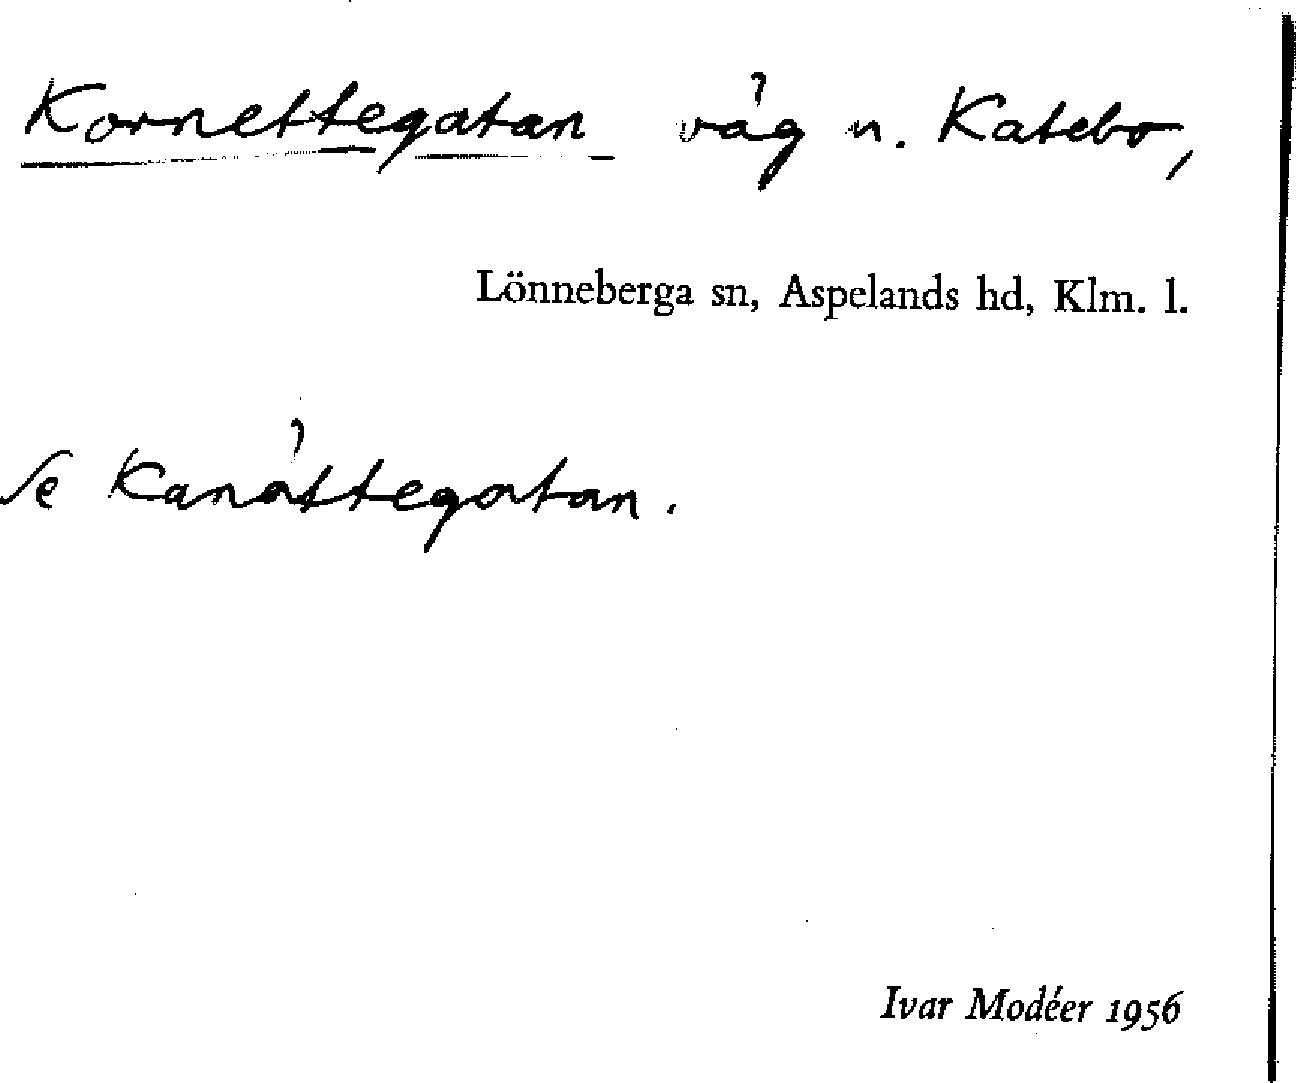 Kornettegatan våg u. Katebo,
Lönneberga sn, Aspelands hd, Klm. l.
Se Kanåttegatan.
Ivar Modéer 1956